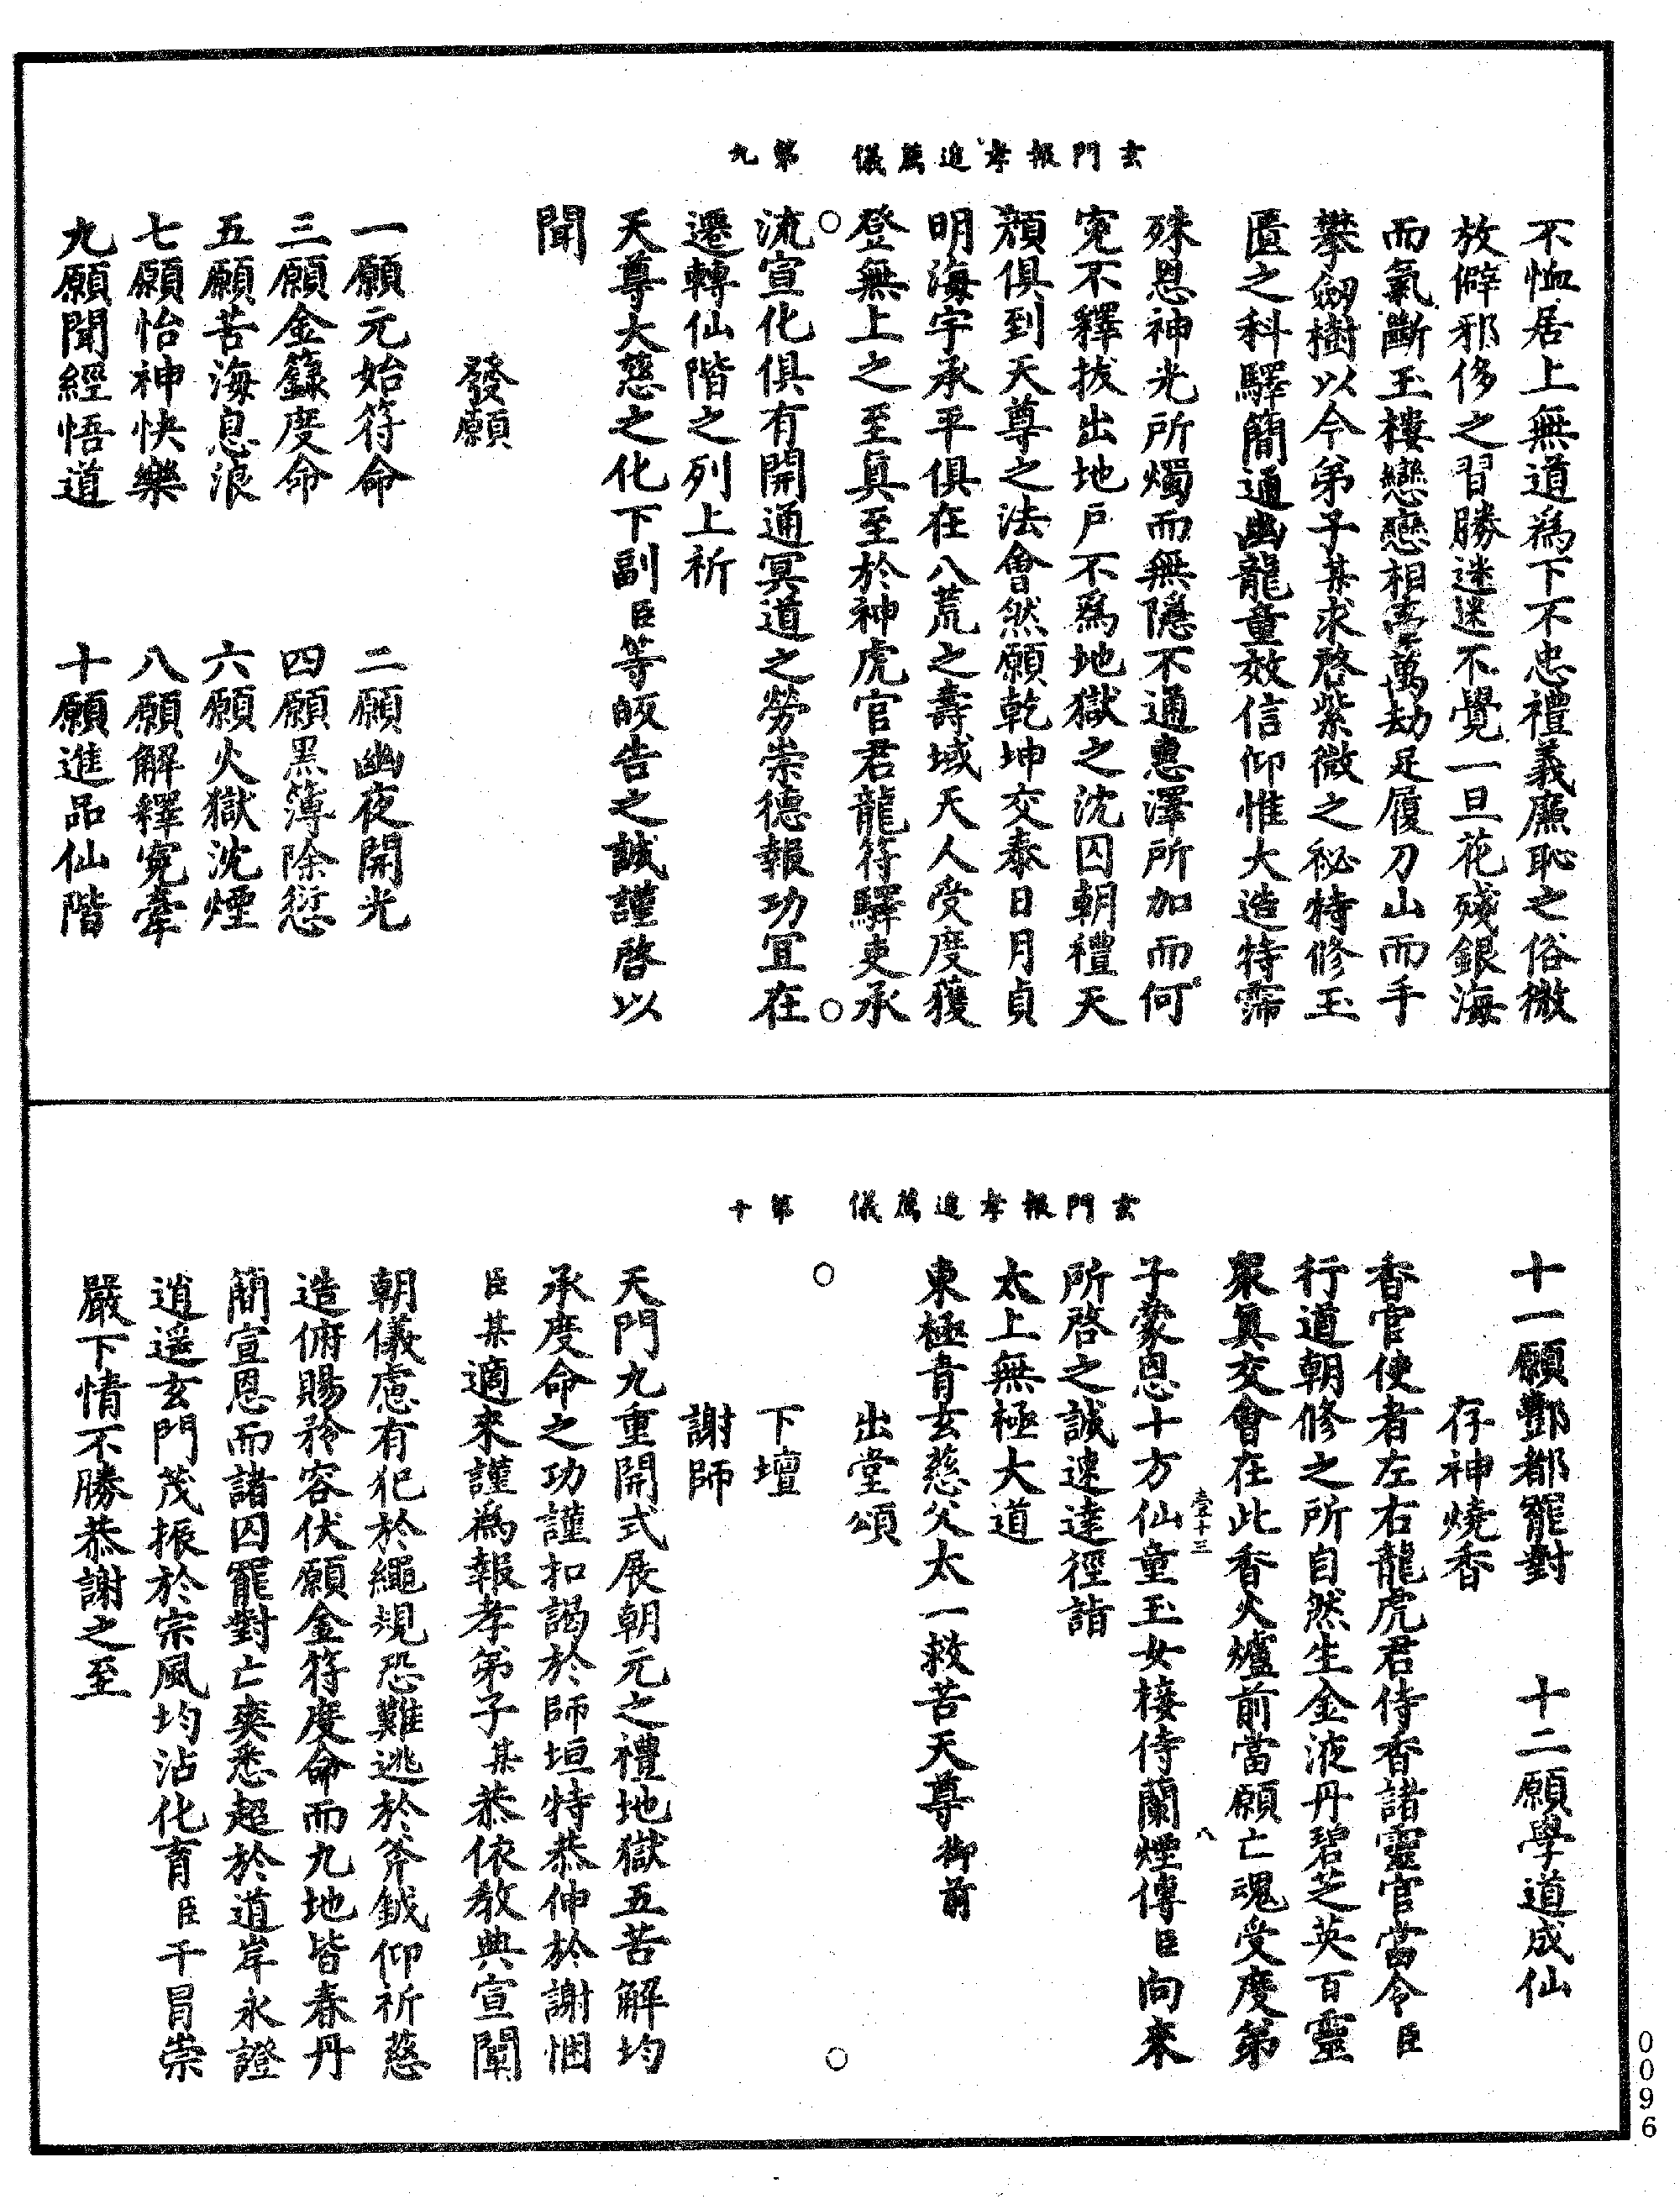 玄門報孝追薦儀　第九
不恤居上無道爲下不忠禮義廉恥之俗微
放僻邪侈之習勝迷迷不覺一旦花殘銀海
而氣斷玉樓戀戀相牽萬劫足履刀山而手
攀劒樹以今弟子某求啓紫微之秘特修玉
匱之科驛簡通幽龍童效信仰惟大造特霈
殊恩神光所燭而無隱不通惠澤所加而何
寃不釋拔出地戶不爲地獄之沈囚朝禮天
顏俱到天尊之法會然願乾坤交泰日月貞
明海宇承平俱在八荒之壽域天人受度獲
登無上之至真至於神虎官君龍符驛吏承
流宣化俱有開通冥道之勞崇德報功宜在
遷轉仙階之列上祈
天尊大慈之化下副臣等皈告之誠謹啓以
聞
發願
一願元始符命　二願幽夜開光
三願金籙度命　四願黑簿除愆
五願苦海息浪　六願火獄沈煙
七願怡神快樂　八願解釋寃牽
九願聞經悟道　十願進品仙階
玄門報孝追薦儀　第十
十一願酆都罷對　十二願學道成仙
存神燒香
香官使者左右龍虎君侍香諸靈官當令臣
行道朝修之所自然生金液丹碧芝英百靈
衆真交會在此香火爐前當願亡魂受度弟
子蒙恩十方仙童玉女接侍蘭煙傳臣向來
壹十三　八
所啓之誠速達徑詣
太上無極大道
東極青玄慈父太一救苦天尊御前
出堂頌
下壇
謝師
天門九重開式展朝元之禮地獄五苦解均
承度命之功謹扣謁於師垣特恭伸於謝悃
臣某適來謹爲報孝弟子某恭依教典宣闡
朝儀慮有犯於繩規恐難逃於斧鉞仰祈慈
造俯賜矜容伏願金符度命而九地皆春丹
簡宣恩而諸囚罷對亡爽悉超於道岸永證
逍遥玄門茂振於宗風均沾化育臣干冒崇
嚴下情不勝恭謝之至
0096